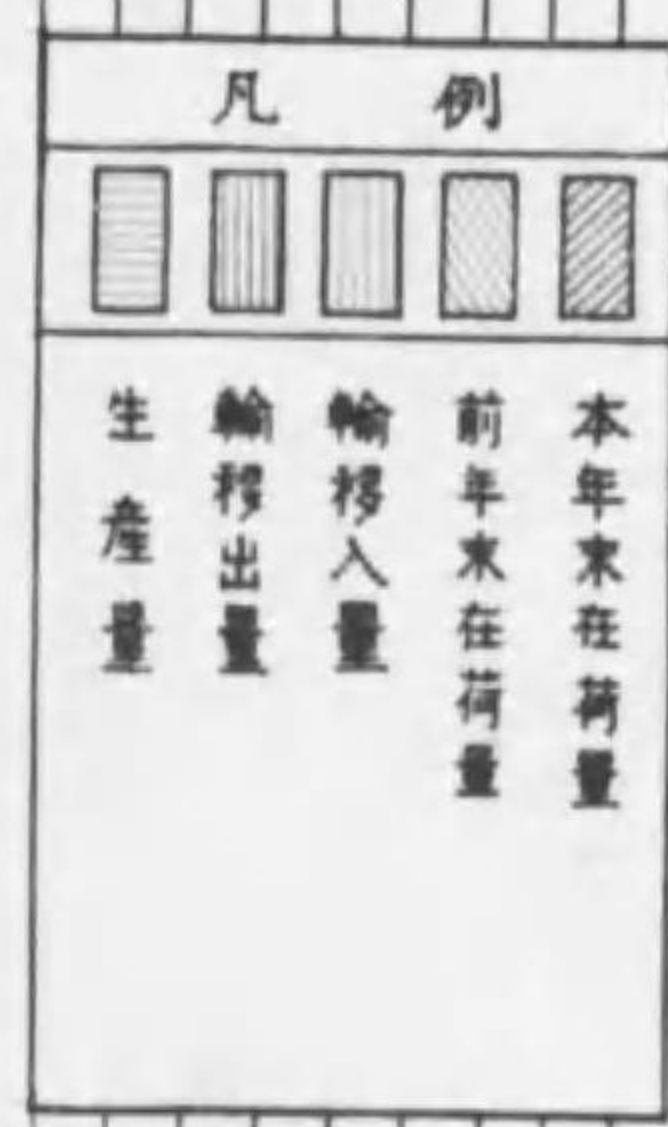 凡例
本年末在荷量
前年末在荷量
輸移入量
輸移出量
生産量